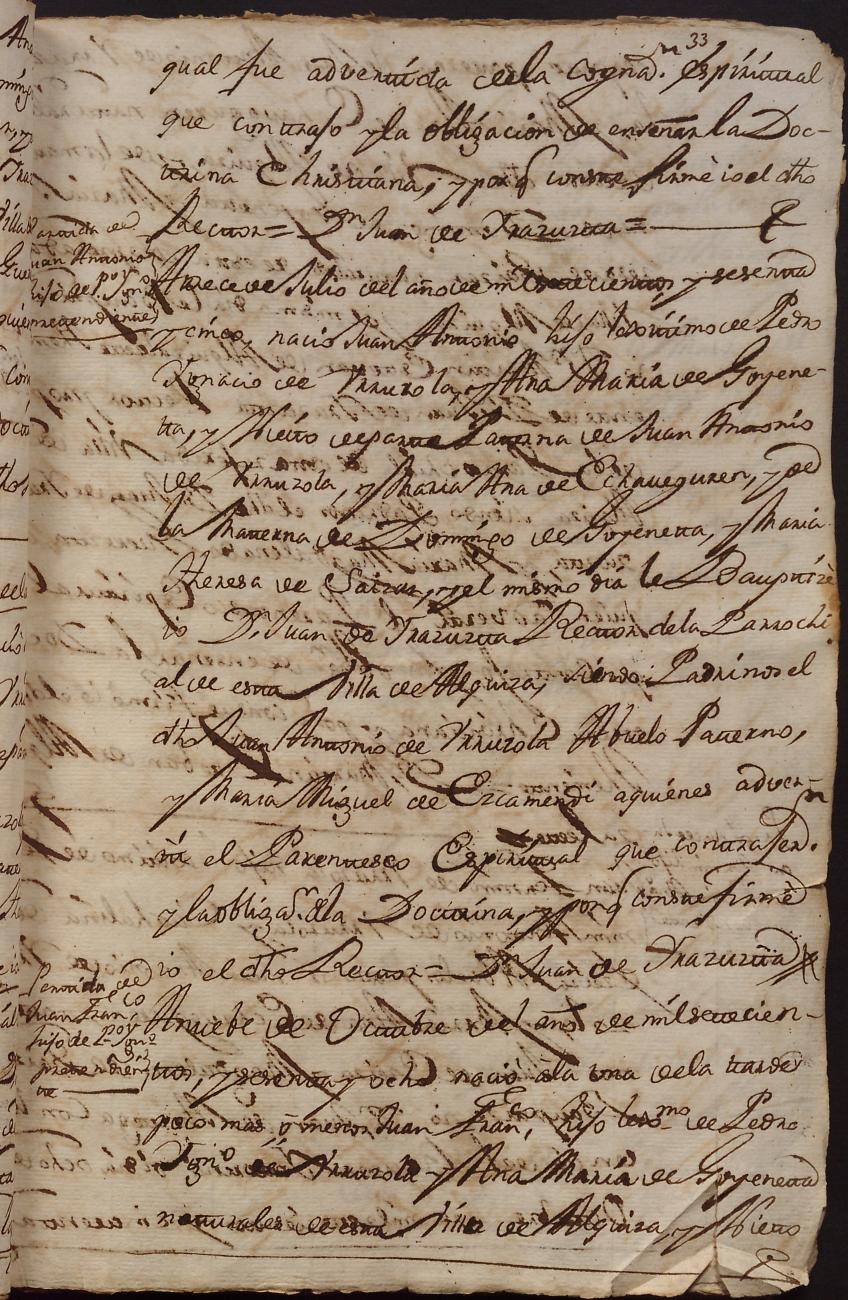 n 33
qual fue advertida de la Cognad.ⁿ Espiritual
que contraſo y la obligacion de enseñar la Doc-
trina Christiana, y porq conste firmè io el dho
Rector = Dⁿ Juan de Irazuzta =
Partida de
Juan Antonio
hijo de P.º y Ign.º
pretendientes
A trece de Julio del año de mil setecientos, y sesenta
y cinco, nacio Juan Antonio hijo lexitimo de Pedro
Ignacio de Yrurzola, y Ana Maria de Goyene-
ta, y Nieto de parte Paterna de Juan Antonio
de Yrurzola, y Maria Ana de Echaveguren, y de
la Materna de Domingo de Goyeneta, y Maria
Theresa de Saizar, y el mismo dia le Bauptizè
io Dⁿ Juan de Irazuzta Rector de la Parrochi
al de esta Villa de Alquiza, siendo Padrinos el
dho Juan Antonio de Yrurzola Abuelo Paterno,
y Maria Miguel de Ercamendi aquienes adver-
ti el Parentesco Espiritual que contrajer.ⁿ
y la obligaⁿ de la Doctrina, y porq conste firmè
io el dho Rector = Dⁿ Juan de Irazuzta
Partida de
Juan Fran.co
hijo de P.º y Ign.º
pretendien
te
A nuebe de Octubre del año de mil setecien-
tos, y sesenta y ocho naciò à la una de la tarde
poco mas, ò menos Juan Fran.co, hijo lex.mo de Pedro
Ign.º de Yrurzola y Ana Maria de Goyeneta
naturales de esta Villa de Alquiza, y Nieto